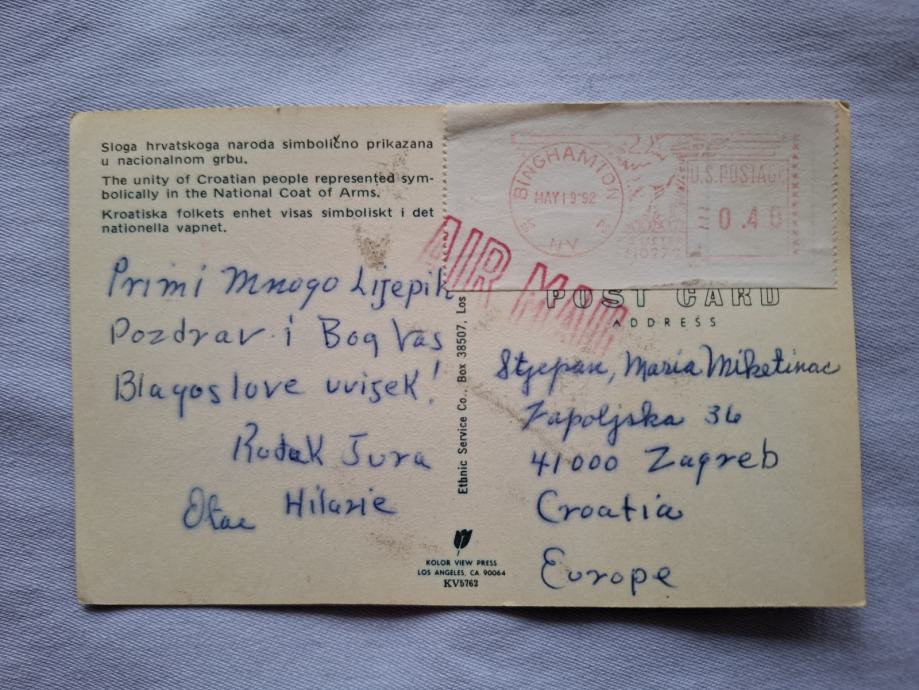 Sloga hrvatskoga naroda simbolično prikazana
u nacionalnom grbu.
The unity of Croatian people represented sym-
bolically in the National Coat of Arms.
Kroatiska folkets enhet visas simboliskt i det
nationella vapnet.
Primi Mnogo Lijepih
Pozdrav i Bog Vas
Blagoslove uvijek!
Rođak Jura
Otac Hilarie
Ethnic Service Co., Box 38507, Los
KOLOR VIEW PRESS
LOS ANGELES, CA 90064
KV5762
BINGHAMTON
MAY 19 '92
NY
U.S. POSTAGE
0.40
AIR MAIL
POST CARD
ADDRESS
Stjepan, Maria Miketinac
Zapoljska 36
41000 Zagreb
Croatia
Europe